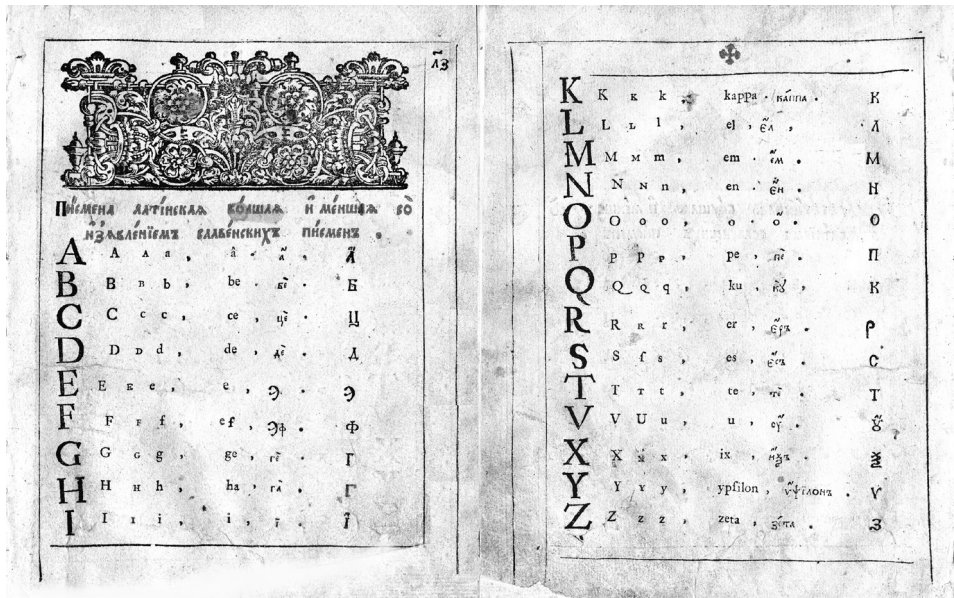 л҃з
Пи́смена лати́нская бо́лшая и҆ ме́ншая со̀
и҆з̾ѧвле́нїемъ славе́нскихъ пи́сменъ .
A A ᴀ a , â . а҆̀ , А҆
B B ʙ b , be . бѐ , Б
C C c c , ce , цѐ , Ц
D D ᴅ d , de , дѐ , Д
E E ᴇ e , e , Э . Э
F F ꜰ f , ef , Эф . Ф
G G ɢ g , ge , гѐ , Г
H H ʜ h , ha , га̀ , Г
I I ɪ i , i , ї , І҆
K K ᴋ k , kappa . ка́ппа . К
L L ʟ l , el , є҆́л , Л
M M ᴍ m , em . є҆́м . М
N N ɴ n , en . є҆́н . Н
O O o o , o , о҆̀ . О
P P P ᴘ , pe , пѐ , П
Q Q Q q , ku , кꙋ̀ , К
R R ʀ r , er , є҆́ръ . Р
S S ſ s , es , є҆́съ . С
T T ᴛ t , te , тѐ . Т
V V U u , u , ᲂу҆̀ . Ꙋ҆
X X x x , ix , и҆́ѯъ . Ѯ
Y Y ʏ y , ypſilon , ѵ҆ψїлонъ . Ѵ
Z Z z z , zeta , зи́та . З